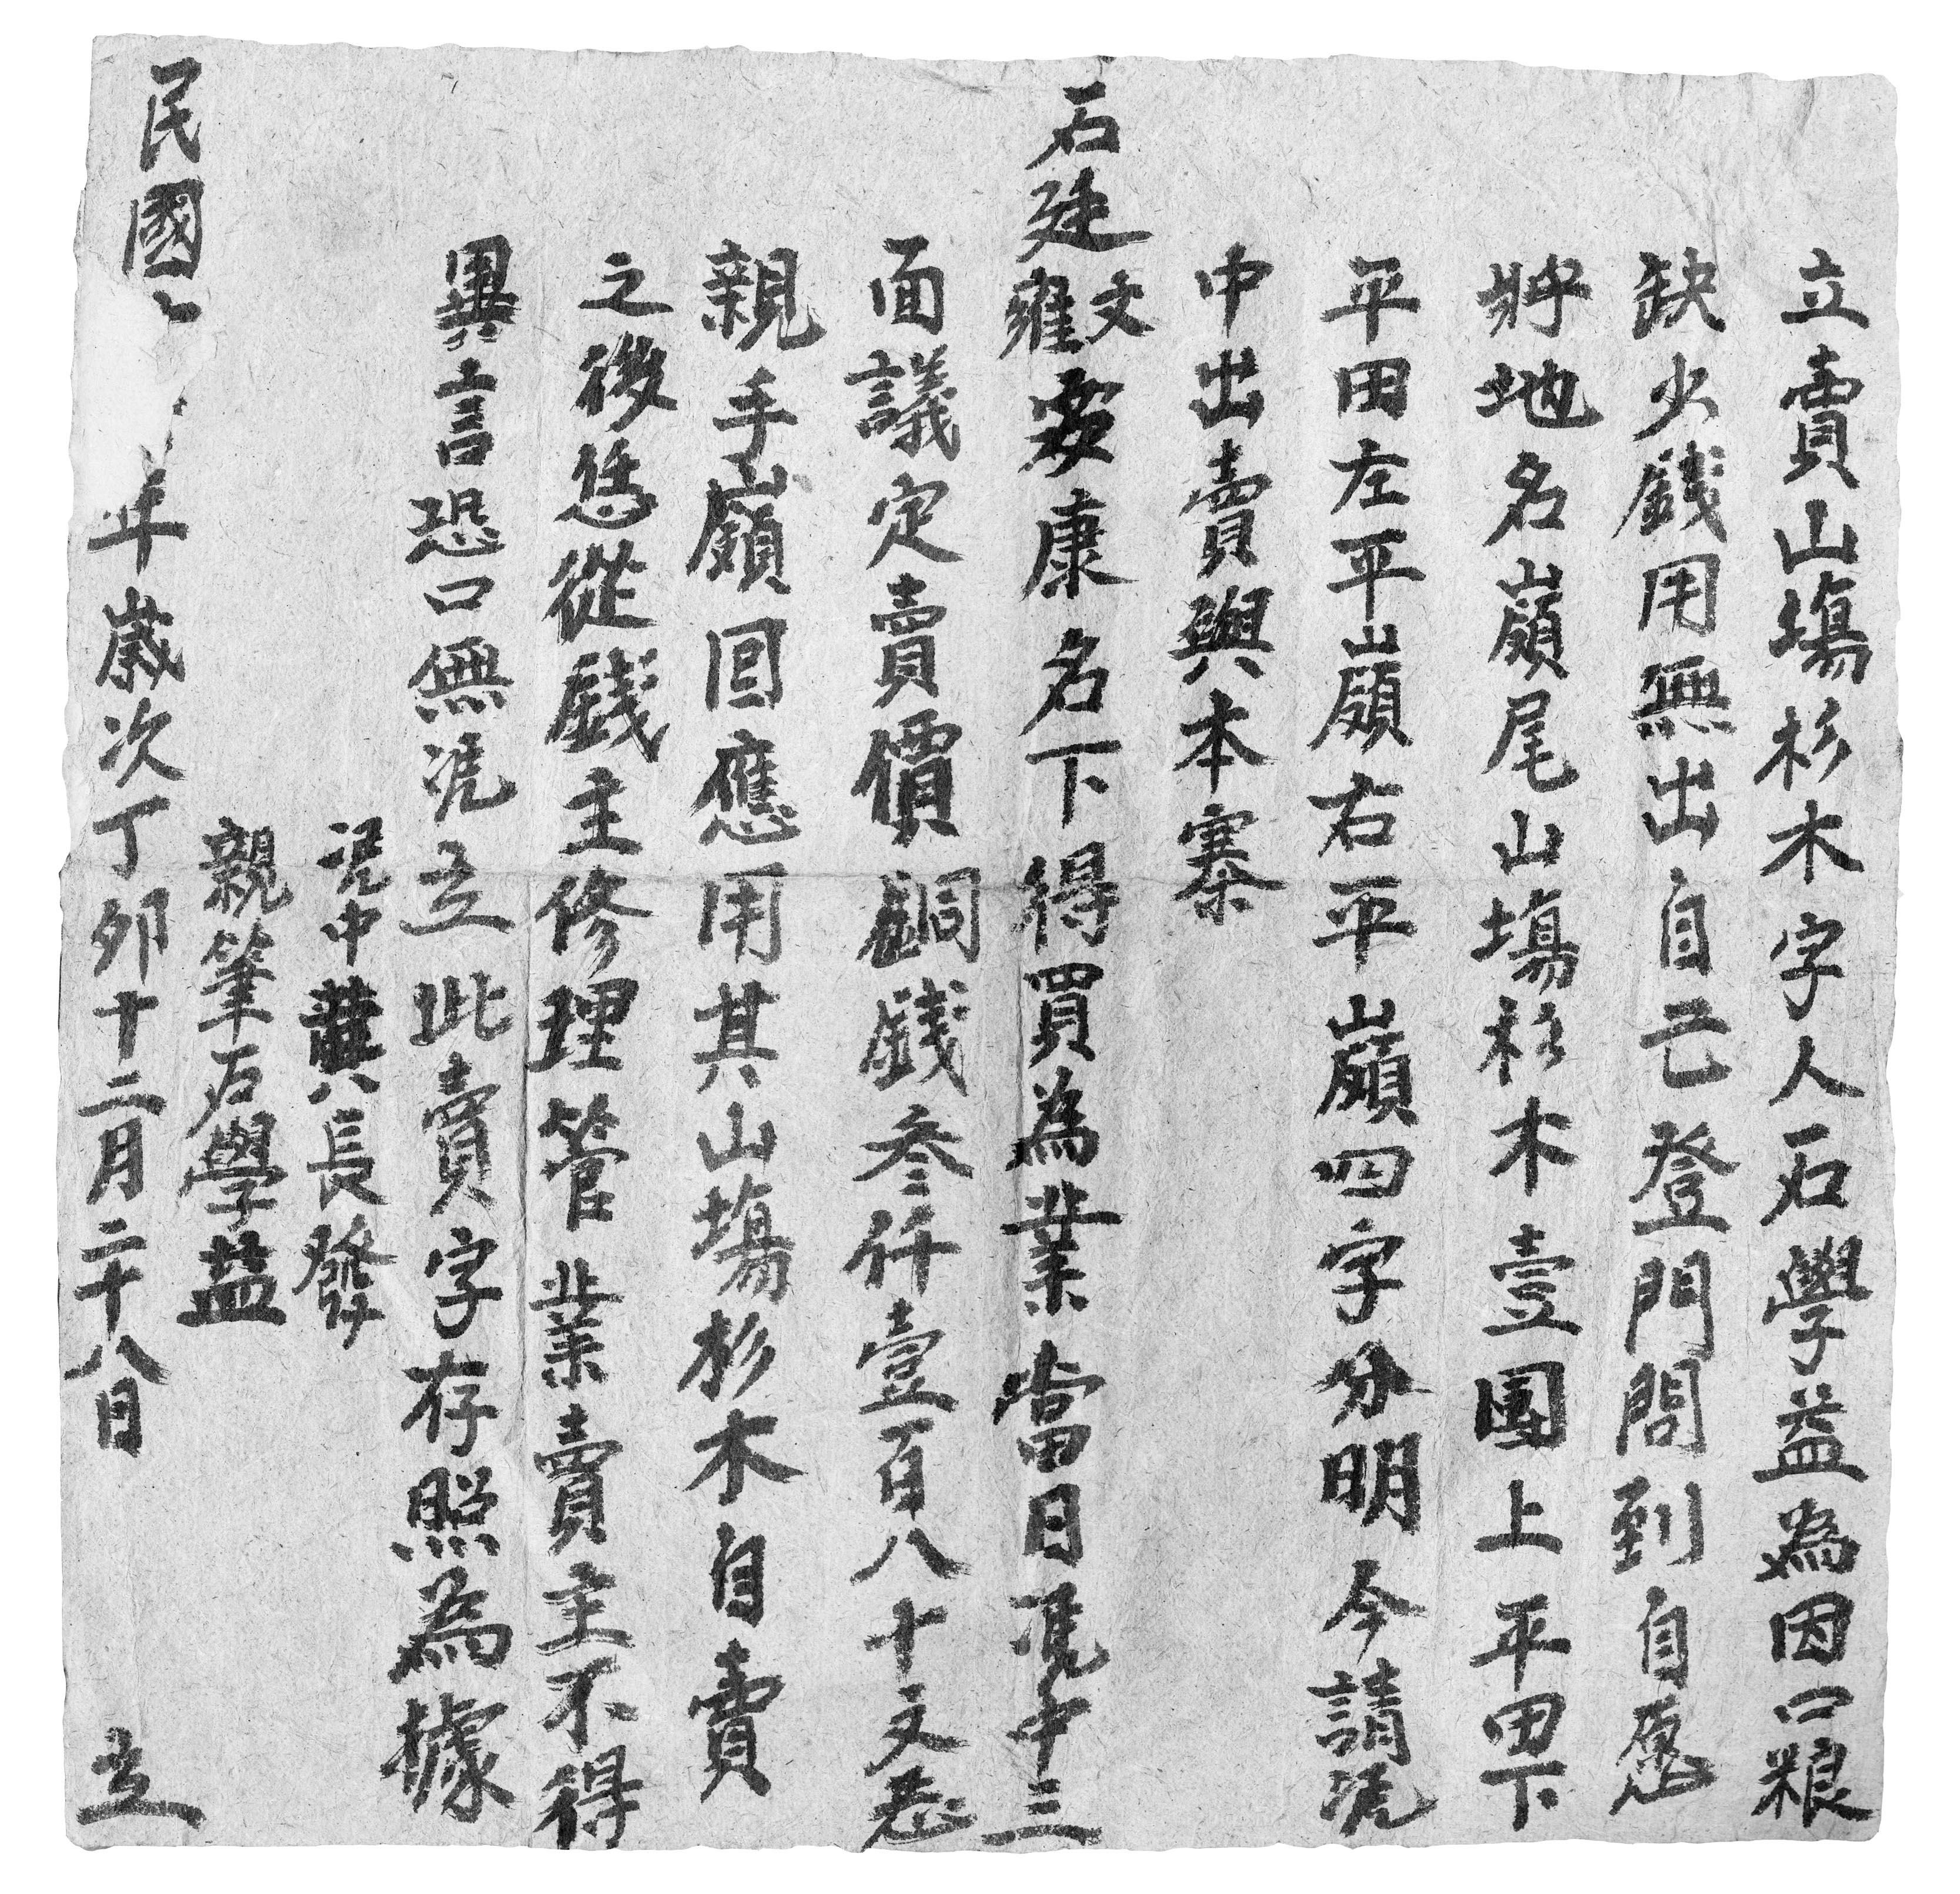 立賣山塲杉木字人石學益為因口粮
缺少錢用無出自己登門問到自愿
將地名嶺尾山塲杉木壹團上平田下
平田左平嶺右平嶺四字分明今請凴
中出賣與本寨
石廷文雍安康名下得買為業當日凴中三
面議定賣價銅錢叁仟壹百八十文忝
親手嶺回應用其山塲杉木自賣
之後恁從錢主修理管業賣主不得
異言恐口無凴立此賣字存照為據
凴中龔長發
親筆石學益
民國年歲次丁卯十二月二十八日立